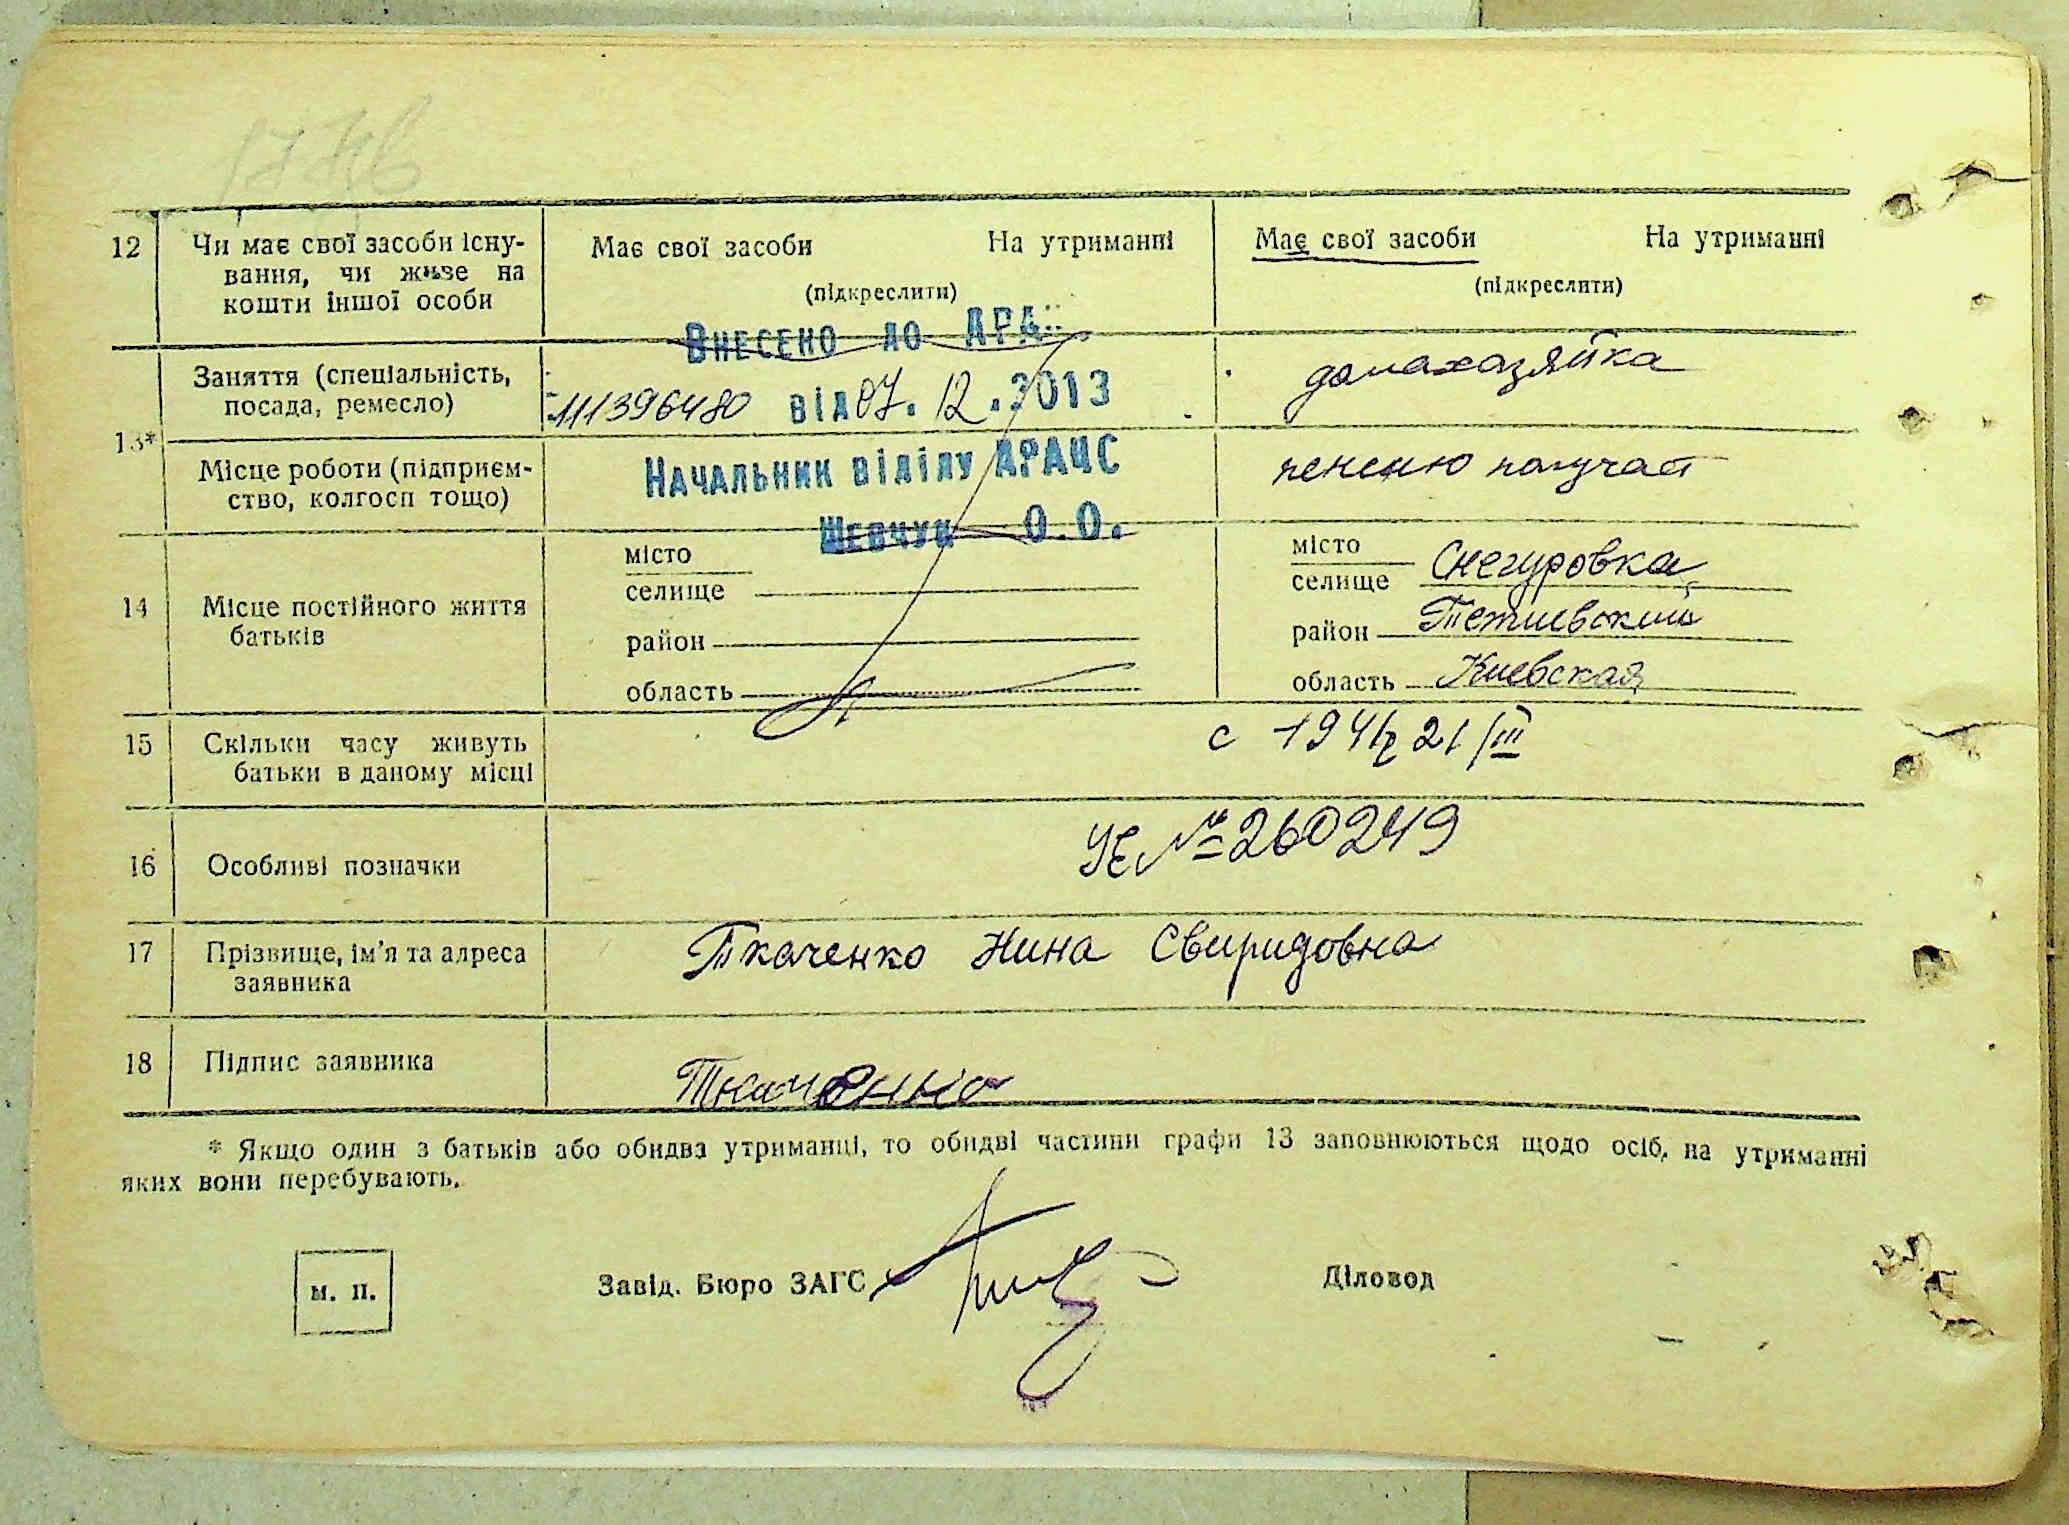 1746
12 Чи має свої засоби існу- Має свої засоби На утриманні Має свої засоби На утриманні
вання, чи живе на (підкреслити) (підкреслити)
кошти іншої особи
Внесено до ДРА
13* Заняття (спеціальність, домахазяйка
посада, ремесло) 111396480 від 07.12.2013
Місце роботи (підприєм- Начальник відділу ДРАЦС пенсию получает
ство, колгосп тощо)
Шевчук О.О.
14 Місце постійного життя місто місто
батьків селище селище Снегуровка
район район Тетиевский
область область Киевская
15 Скільки часу живуть с 1941г 21/III
батьки в даному місці
16 Особливі позначки УЕ № 260249
17 Прізвище, ім’я та адреса Ткаченко Нина Свиридовна
заявника
18 Підпис заявника Ткаченко
* Якщо один з батьків або обидва утриманці, то обидві частини графи 13 заповнюються щодо осіб, на утриманні
яких вони перебувають.
м. п. Завід. Бюро ЗАГС Діловод